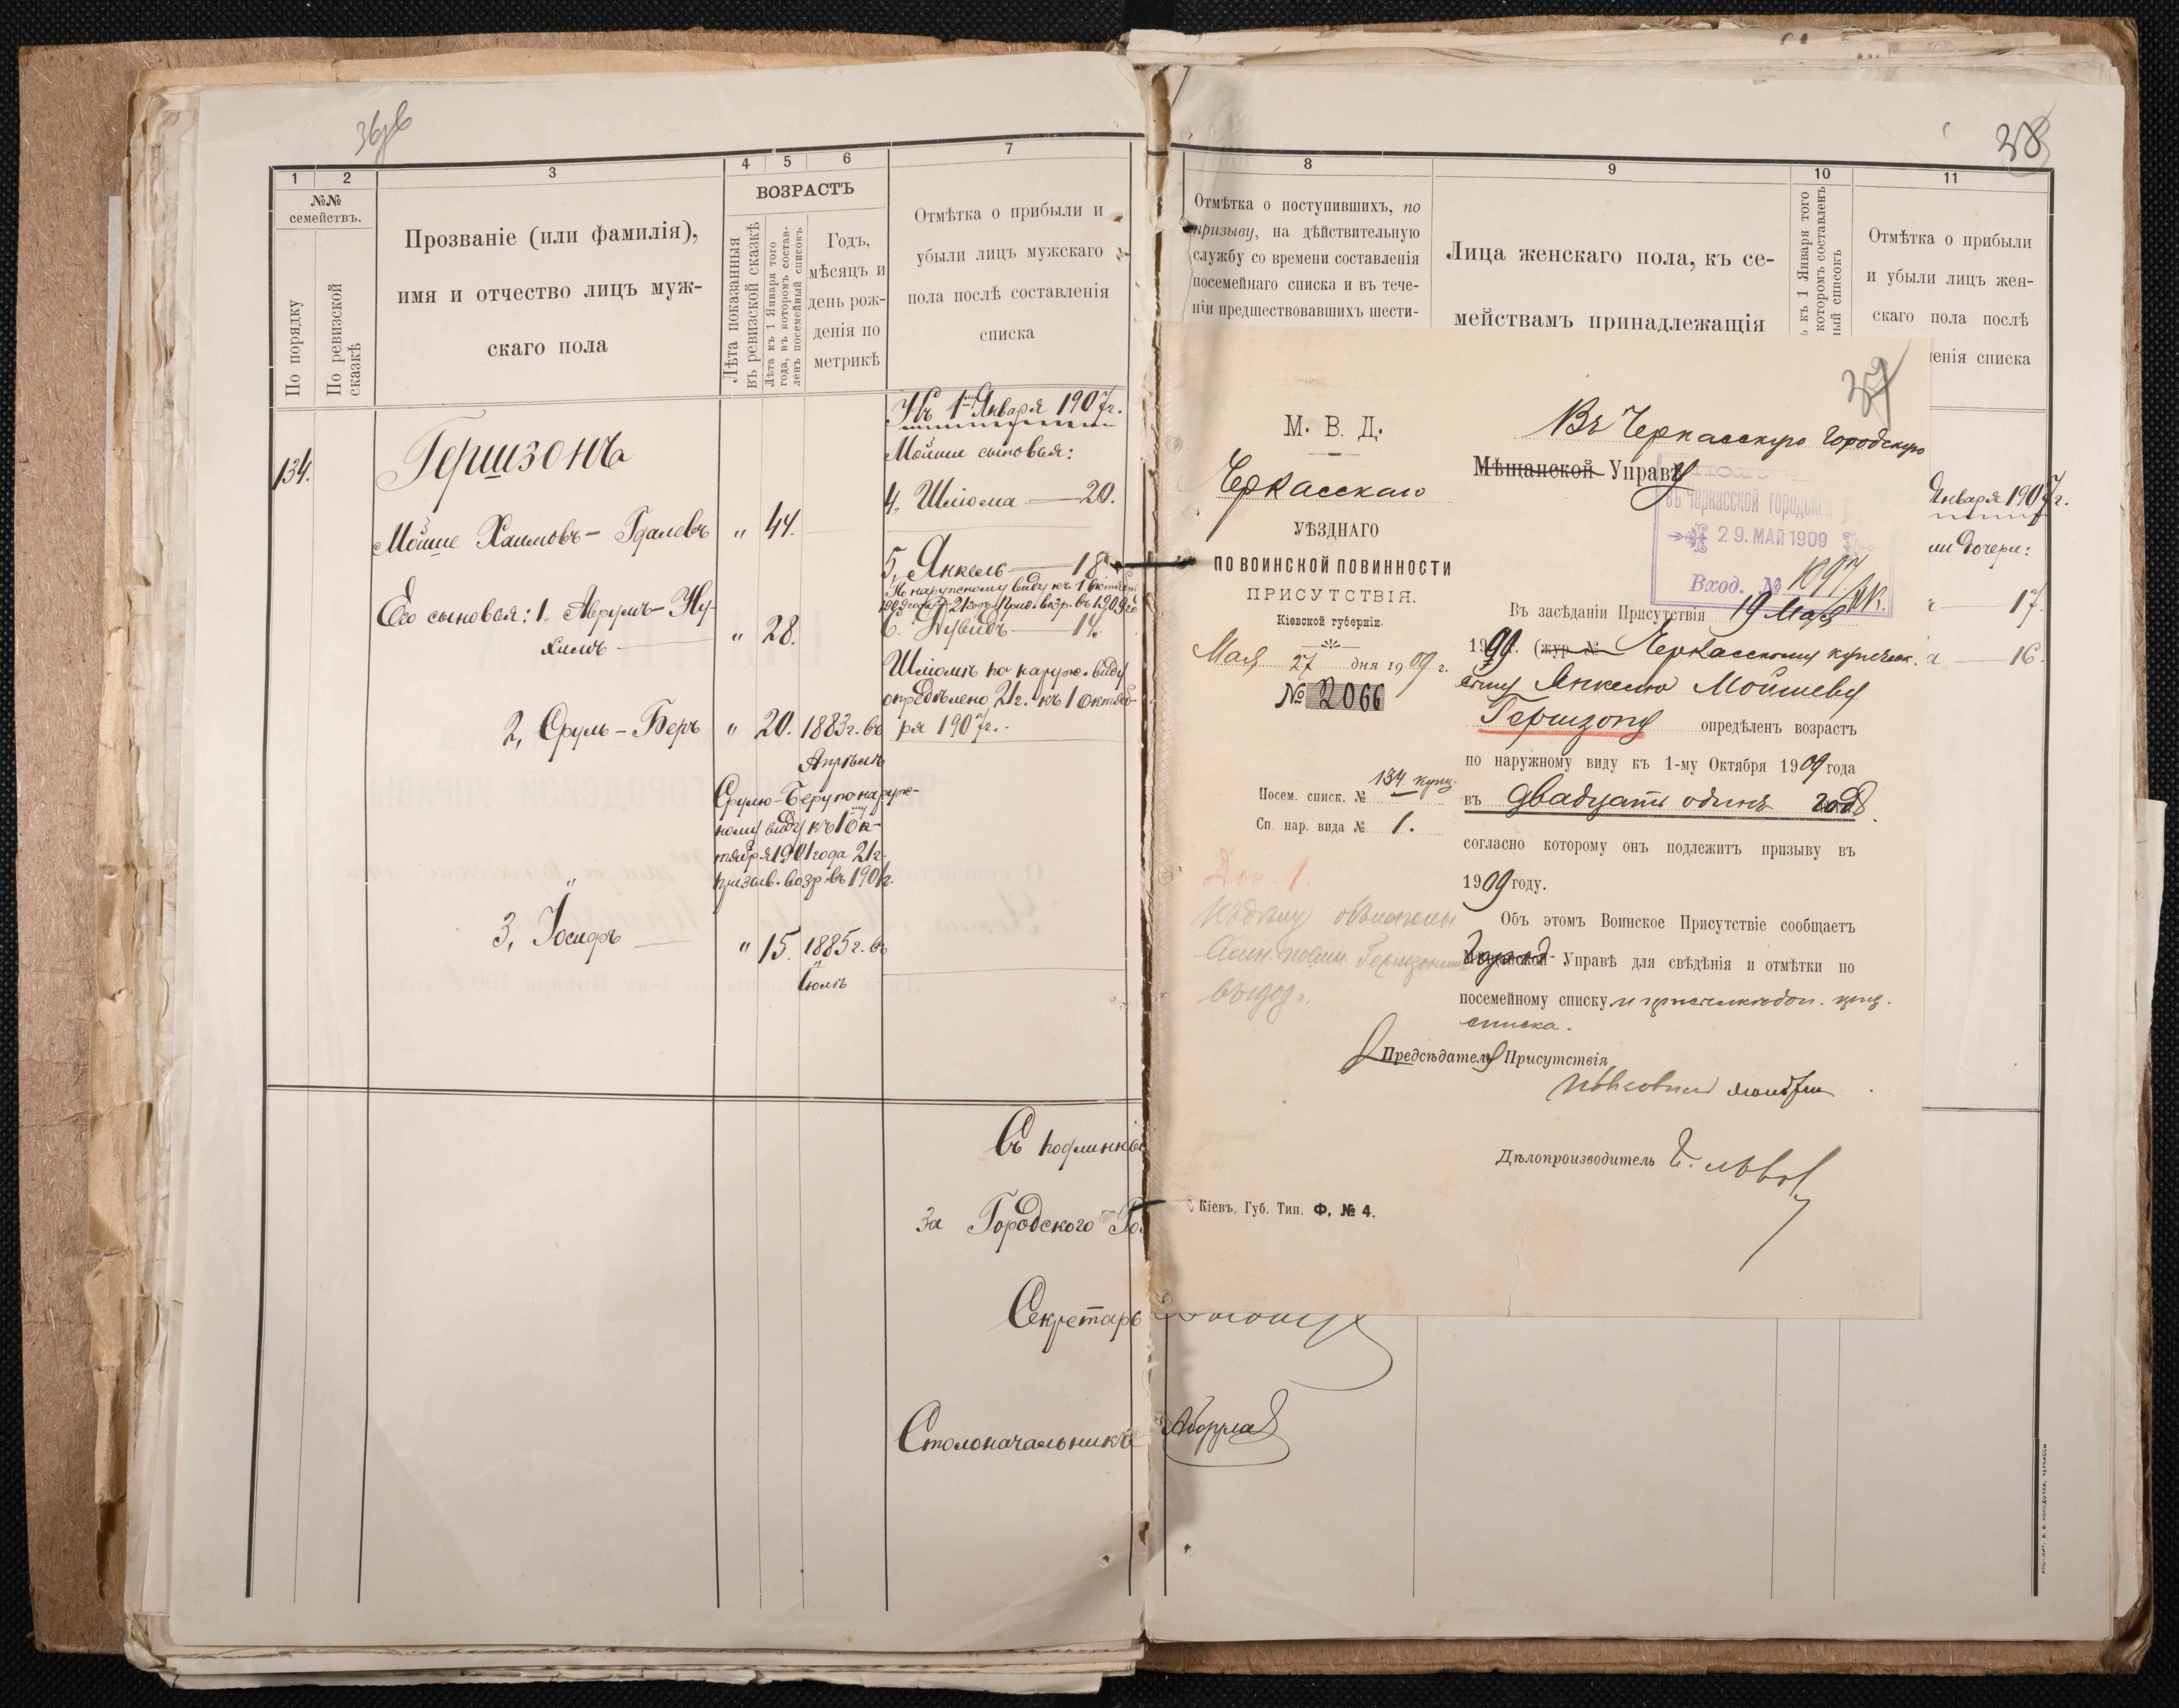 36об
1
2
3
4
5
6
7
№№
семействъ.
По порядку
По ревизской
сказкѣ
Прозваніе (или фамилія),
имя и отчество лицъ муж-
скаго пола
ВОЗРАСТЪ
Лѣта показанныя
въ ревизской сказкѣ
Лѣта къ 1 Января того
года, въ которомъ состав-
ленъ посемейный списокъ
Годъ,
мѣсяцъ и
день рож-
денія по
метрикѣ
Отмѣтка о прибыли и
убыли лицъ мужскаго
пола послѣ составленія
списка
134.
Гершзонъ
Мойше Хаимовъ-Гдалевъ " 44.
Его сыновья: 1. Аврумъ-Ну-
химъ " 28.
2, Сруль-Беръ " 20. 1883г. въ
Апрѣлѣ
Срулю-Беру по наруж-
ному виду къ 1 Ок-
тября 1901 года 21г.
призыв. возр. въ 190
3, Іосифъ " 15. 1885г. въ
Іюлѣ
Къ 1 Января 1907г.
Мойши сыновья:
4. Шліома — 20.
5, Янкель — 18
По наружному виду къ 1 октября
1909 года 21 годъ. Приз. возр. въ 1909 г
6. Дувидъ — 14.
Шліомѣ по наруж. виду
опредѣлено 21г. къ 1 октяб-
ря 1907г.
За Городского Го
Секретарь
Столоначальникъ
38
8
9
10
11
Отмѣтка о поступившихъ, по
призыву, на дѣйствительную
службу со времени составленія
посемейнаго списка и въ тече-
ніи предшествовавшихъ шести-
Лица женскаго пола, къ се-
мействамъ принадлежащія
къ 1 Января того
которомъ составленъ
ный списокъ
Отмѣтка о прибыли
и убыли лицъ жен-
скаго пола послѣ
ленія списка
Января 1907г.
ши дочери:
17.
а — 16.
37
М. В. Д.
Черкасскаго
УѢЗДНАГО
ПО ВОИНСКОЙ ПОВИННОСТИ
ПРИСУТСТВІЯ.
Кіевской губерніи.
Мая 27 дня 1909 г.
№ 2066
Посем. списк. № 134 купц.
Сп. нар. вида № 1.
Въ Черкасскую Городскую
Мѣщанской Управу
въ Черкасской городской
29. МАЙ 1909
Вход. №
Въ засѣданіи Присутствія 19 Мая
1909. (жур. № Черкасскому купеческ.
сыну Янкелю Мойшеву
Гершзону опредѣленъ возрастъ
по наружному виду къ 1-му Октября 1909 года
въ двадцать одинъ годъ.
согласно которому онъ подлежитъ призыву въ
1909 году.
Объ этомъ Воинское Присутствіе сообщаетъ
Управѣ для свѣдѣнія и отмѣтки по
посемейному списку
списка.
Предсѣдатель Присутствія
Дѣлопроизводитель
Кіевъ, Губ. Тип. Ф. № 4.